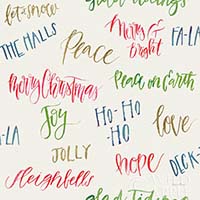 let it snow
glad tidings
THE HALLS
Peace
Merry &
Bright
FA-LA
Merry Christmas
Peace on Earth
Joy
HO-HO
-HO
love
-LA
JOLLY
hope
DECK
Sleighbells
glad tidings